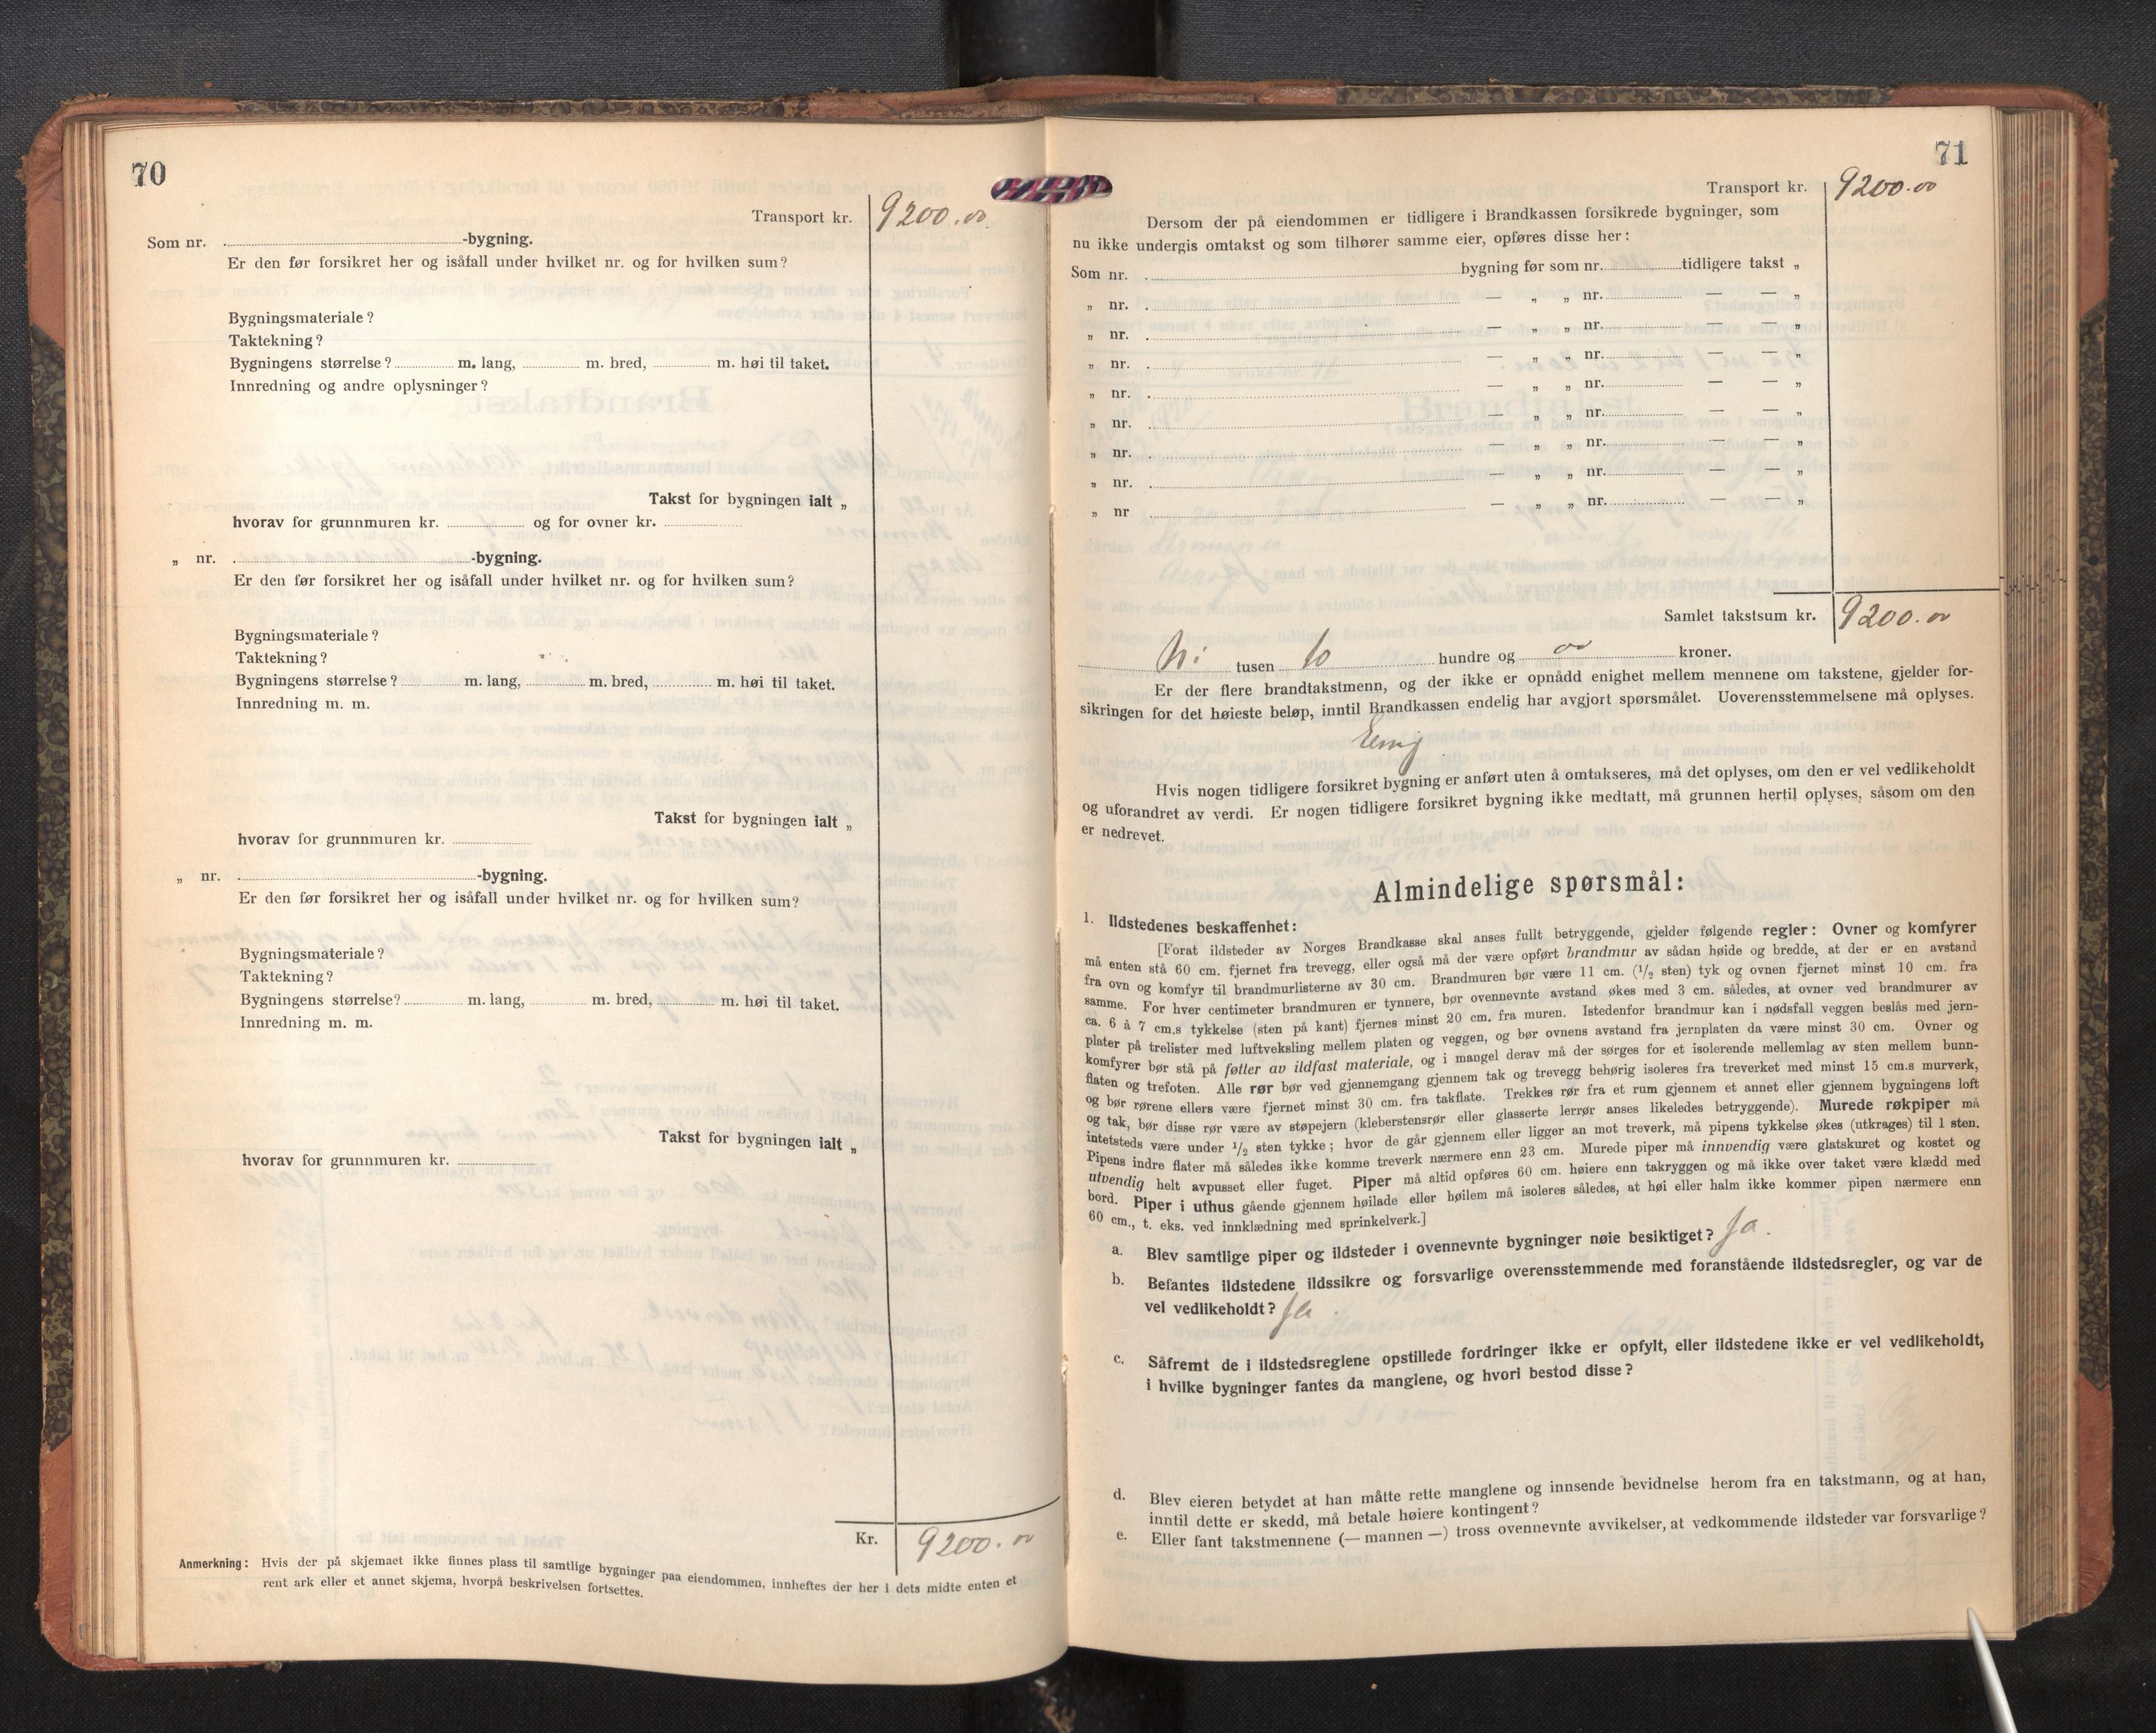 70
Transport kr. 9200.00
Som nr. -bygning.
Er den før forsikret her og isåfall under hvilket nr. og for hvilken sum?
Bygningsmateriale?
Taktekning?
Bygningens størrelse? m. lang, m. bred, m. høi til taket.
Innredning og andre oplysninger?
Takst for bygningen ialt „
hvorav for grunnmuren kr. og for ovner kr.
„ nr. -bygning.
Er den før forsikret her og isåfall under hvilket nr. og for hvilken sum?
Bygningsmateriale?
Taktekning?
Bygningens størrelse? m. lang, m. bred, m. høi til taket.
Innredning m. m.
Takst for bygningen ialt „
hvorav for grunnmuren kr.
„ nr. -bygning.
Er den før forsikret her og isåfall under hvilket nr. og for hvilken sum?
Bygningsmateriale?
Taktekning?
Bygningens størrelse? m. lang, m. bred, m. høi til taket.
Innredning m. m.
Takst for bygningen ialt „
hvorav for grunnmuren kr.
Kr. 9200.00
Anmerkning: Hvis der på skjemaet ikke finnes plass til samtlige bygninger paa eiendommen, innheftes der her i dets midte enten et
rent ark eller et annet skjema, hvorpå beskrivelsen fortsettes.
71
Transport kr. 9200.00
Dersom der på eiendommen er tidligere i Brandkassen forsikrede bygninger, som
nu ikke undergis omtakst og som tilhører samme eier, opføres disse her:
Som nr. bygning før som nr. tidligere takst „
„ nr. — „ „ nr. — — „
„ nr. — „ „ nr. — — „
„ nr. — „ „ nr. — — „
„ nr. — „ „ nr. — — „
„ nr. — „ „ nr. — — „
„ nr. — „ „ nr. — — „
„ nr. — „ „ nr. — — „
„ nr — „ „ nr. — — „
Samlet takstsum kr. 9200.00
Ni tusen to hundre og 00 kroner.
Er der flere brandtakstmenn, og der ikke er opnådd enighet mellem mennene om takstene, gjelder for-
sikringen for det høieste beløp, inntil Brandkassen endelig har avgjort spørsmålet. Uoverensstemmelsene må oplyses.
Enig
Hvis nogen tidligere forsikret bygning er anført uten å omtakseres, må det oplyses, om den er vel vedlikeholdt
og uforandret av verdi. Er nogen tidligere forsikret bygning ikke medtatt, må grunnen hertil oplyses, såsom om den
er nedrevet.
Almindelige spørsmål:
1. Ildstedenes beskaffenhet:
[Forat ildsteder av Norges Brandkasse skal anses fullt betryggende, gjelder følgende regler: Ovner og komfyrer
må enten stå 60 cm. fjernet fra trevegg, eller også må der være opført brandmur av sådan høide og bredde, at der er en avstand
fra ovn og komfyr til brandmurlisterne av 30 cm. Brandmuren bør være 11 cm. (1/2 sten) tyk og ovnen fjernet minst 10 cm. fra
samme. For hver centimeter brandmuren er tynnere, bør ovennevnte avstand økes med 3 cm. således, at ovner ved brandmurer av
ca. 6 à 7 cm.s tykkelse (sten på kant) fjernes minst 20 cm. fra muren. Istedenfor brandmur kan i nødsfall veggen beslås med jern-
plater på trelister med luftveksling mellem platen og veggen, og bør ovnens avstand fra jernplaten da være minst 30 cm. Ovner og
komfyrer bør stå på føtter av ildfast materiale, og i mangel derav må der sørges for et isolerende mellemlag av sten mellem bunn-
flaten og trefoten. Alle rør bør ved gjennemgang gjennem tak og trevegg behørig isoleres fra treverket med minst 15 cm.s murverk,
og bør rørene ellers være fjernet minst 30 cm. fra takflate. Trekkes rør fra et rum gjennem et annet eller gjennem bygningens loft
og tak, bør disse rør være av støpejern (kleberstensrør eller glasserte lerrør anses likeledes betryggende). Murede røkpiper må
intetsteds være under 1/2 sten tykke; hvor de går gjennem eller ligger an mot treverk, må pipens tykkelse økes (utkrages) til 1 sten.
Pipens indre flater må således ikke komme treverk nærmere enn 23 cm. Murede piper må innvendig være glatskuret og kostet og
utvendig helt avpusset eller fuget. Piper må altid opføres 60 cm. høiere enn takryggen og må ikke over taket være klædd med
bord. Piper i uthus gående gjennem høilade eller høilem må isoleres således, at høi eller halm ikke kommer pipen nærmere enn
60 cm., t. eks. ved innklædning med sprinkelverk.]
a. Blev samtlige piper og ildsteder i ovennevnte bygninger nøie besiktiget? Ja.
b. Befantes ildstedene ildssikre og forsvarlige overensstemmende med foranstående ildstedsregler, og var de
vel vedlikeholdt? Ja
c. Såfremt de i ildstedsreglene opstillede fordringer ikke er opfylt, eller ildstedene ikke er vel vedlikeholdt,
i hvilke bygninger fantes da manglene, og hvori bestod disse?
d. Blev eieren betydet at han måtte rette manglene og innsende bevidnelse herom fra en takstmann, og at han,
inntil dette er skedd, må betale høiere kontingent?
e. Eller fant takstmennene (— mannen —) tross ovennevnte avvikelser, at vedkommende ildsteder var forsvarlige?